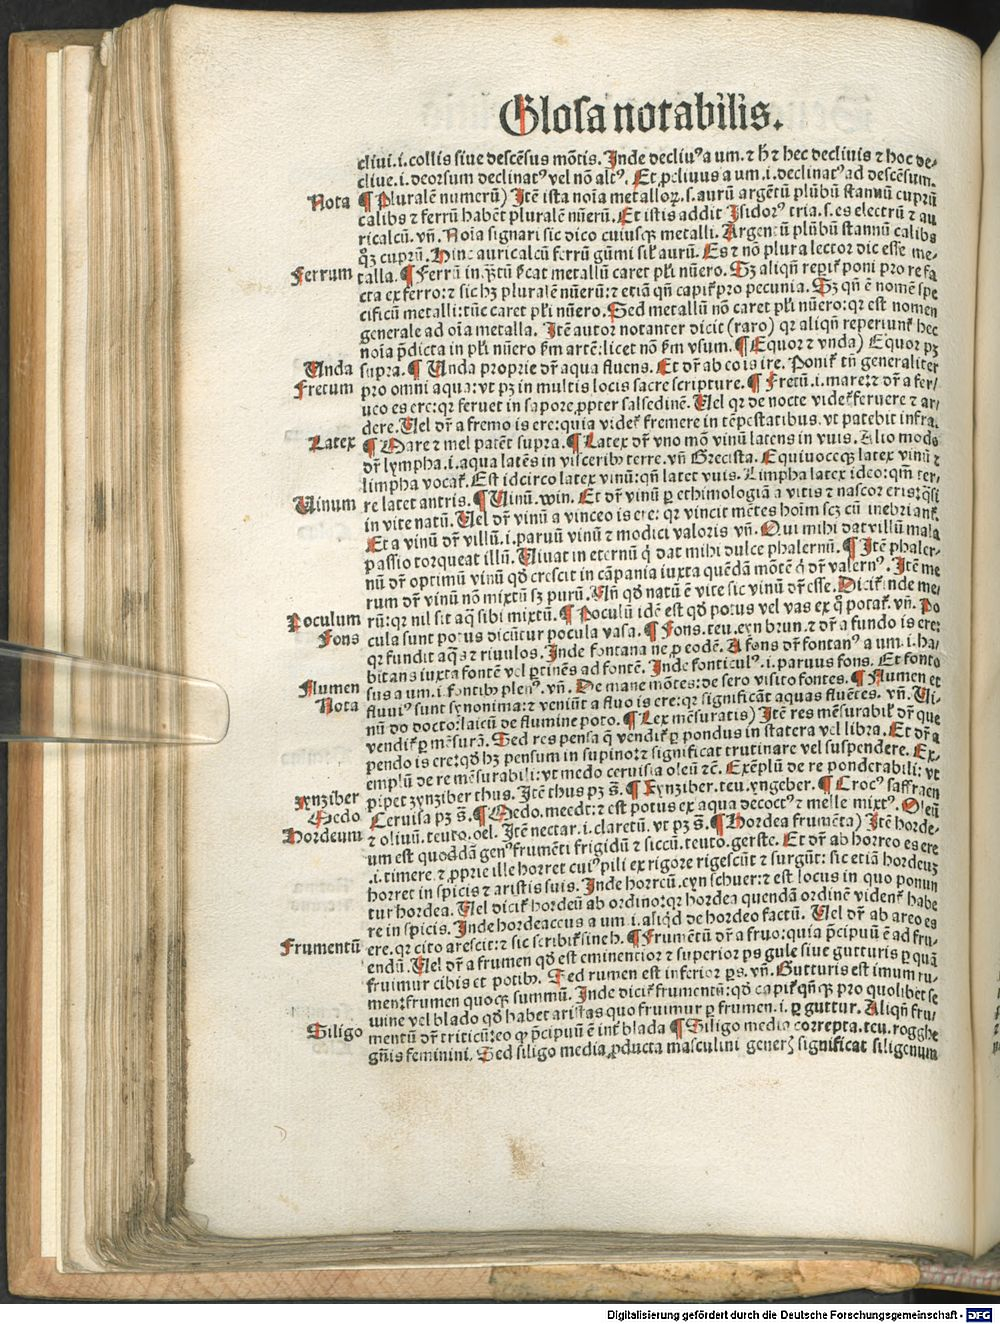 Glosa notabilis.
cliui.i.collis siue descēsus mōtis. Inde decliuꝰ a um. ⁊ h̄ ⁊ hec decliuis ⁊ hoc de⸗
cliue.i.deorsum declinatꝰ vel nō altꝰ. Et ꝓcliuus a um.i.declinatꝰ ad descēsum.
Nota ¶ Pluralē numerū) Itē ista noīa metalloꝝ.s.aurū argētū plūbū stannū cuprū
calibs ⁊ ferrū habēt pluralē nūerū. Et istis addit Isidorꝰ tria.s.es electrū ⁊ au
ricalcū. vn̄. Noīa signari sic dico cuiusqꝫ metalli. Argentū plūbū stannū calibs
cuprū. Hinc auricalcū ferrū gūmi sil̓ aurū. Es ⁊ nō plura lector dic esse me⸗
Ferrum talla. ¶ Ferrū in ꝙ̄tū metallū caret pl̓i nūero. Sꝫ aliqn̄ reperit̓ poni pro re fa
cta ex ferro: ⁊ sic hꝫ pluralē nūerū: ⁊ etiā qn̄ capit̓ pro pecunia. Sꝫ qn̄ ē nomē spe
cificū metalli: tūc caret pl̓i nūero. Sed metallū nō caret pl̓i nūero: qr est nomen
generale ad oīa metalla. Itē autor notanter dicit (raro) qr aliqn̄ reperiunt̓ hec
noīa p̄dicta in pl̓i nūero artē: licet nō vsum. ¶ Equor ⁊ vnda) Equor pꝫ
Unda supra. ¶ Unda proprie dr̄ aqua fluens. Et dr̄ ab eo is ire. Ponit̓ tn̄ generaliter
Fretum pro omni aqua: vt pꝫ in multis locis sacre scripture. ¶ Fretū.i.mare: ⁊ dr̄ a fer⸗
ueo es ere: qr feruet in sapore ꝓpter salsedinē. Uel qr de nocte videt̓ feruere ⁊ ar⸗
dere. Uel dr̄ a fremo is ere: quia videt̓ fremere in tēpestatibus. vt patebit infra.
Latex ¶ Mare ⁊ mel patēt supra. ¶ Latex dr̄ vno mō vinū latens in vuis. Alio modo
dr̄ lympha.i.aqua latēs in visceribꝰ terre. vn̄ Grecista. Equiuoceqꝫ latex vinū ⁊
limpha vocat̓. Est idcirco latex vinū: qn̄ latet vuis. Limpha latex ideo: qm̄ ter⸗
Uinum re latet antris. ¶ Uinū. win. Et dr̄ vinū ꝑ ethimologiā a vitis ⁊ nascor eris: q̄si
in vite natū. Uel dr̄ vinū a vinceo is ere: qr vincit mētes hoīm scꝫ cū inebriant̓.
Et a vinū dr̄ villū.i.paruū vinū ⁊ modici valoris vn̄. Qui mihi dat villū mala
passio torqueat illū. Uiuat in eternū q̓ dat mihi dulce phalernū. ¶ Itē phaler⸗
nū dr̄ optimū vinū qd̓ crescit in cāpania iuxta quēdā mōtē q̓ dr̄ valernꝰ. Itē me
rum dr̄ vinū nō mixtū sꝫ purū. Un̄ qd̓ natū ē vite sic vinū dr̄ esse. Dicit̓ inde me⸗
Poculum rū: qr nil sit aq̄ sibi mixtū. ¶ Poculū idē est qd̓ potus vel vas ex q̊ potat̓. vn̄. Po
Fons cula sunt potus dicūtur pocula vasa. ¶ Fons. teu. eyn brun. ⁊ dr̄ a fundo is ere:
qr fundit aq̄s ⁊ riuulos. Inde fontana ne ꝓ eodē. A fons dr̄ fontanꝰ a um.i.ha⸗
bitans iuxta fontē vel ꝑtinēs ad fontē. Inde fonticulꝰ.i.paruus fons. Et fonto
Flumen sus a um.i.fontibꝰ plenꝰ. vn̄. De mane mōtes: de sero visito fontes. ¶ Flumen et
Nota fluuiꝰ sunt synonima: ⁊ veniūt a fluo is ere: qr significāt aquas fluētes. vn̄. Ui⸗
nū do doctor: laicū de flumine poto. ¶ Lex mēsuratis) Itē res mēsurabil̓ dr̄ que
vendit̓ ꝑ mēsurā. Sed res pensa q̄ vendit̓ ꝑ pondus in statera vel libra. Et dr̄ a
pendo is ere: qd̓ hꝫ pensum in supino: ⁊ significat trutinare vel suspendere. Ex⸗
emplū de re mēsurabili: vt medo ceruisia oleū ⁊c̄. Exēplū de re ponderabili: vt
xynziber pipet zynziber thus. Itē thus pꝫ s̄. ¶ Xynziber. teu. yngeber. ¶ Crocꝰ saffraen
Medo Ceruisa pꝫ s̄. ¶ Medo. meedt: ⁊ est potus ex aqua decoctꝰ ⁊ melle mixtꝰ. Oleū
Hordeum ⁊ oliuū. teuto. oel. Itē nectar.i.claretū. vt pꝫ s̄. ¶ Hordea frumēta) Itē horde⸗
um est quoddā genꝰ frumēti frigidū ⁊ siccū. teuto. gerste. Et dr̄ ab horreo es ere
.i.timere. ⁊ ꝓprie ille horret cuiꝰ pili ex rigore rigescūt ⁊ surgūt: sic etiā hordeuꝫ
horret in spicis ⁊ aristis suis. Inde horreū. eyn schuer: ⁊ est locus in quo ponun
tur hordea. Uel dicit̓ hordeū ab ordino: qr hordea quendā ordinē vident̓ habe
re in spicis. Inde hordeaceus a um.i.aliqd̓ de hordeo factū. Uel dr̄ ab areo es
Frumentū ere. qr cito arescit: ⁊ sic scribit̓ sine h. ¶ Frumētū dr̄ a fruor: quia p̄cipuū ē ad fru⸗
endū. Uel dr̄ a frumen qd̓ est eminentior ⁊ superior ps gule siue gutturis ꝑ quā
fruimur cibis et potibꝰ. Sed rumen est inferior ps. vn̄. Gutturis est imum ru⸗
men: frumen quoqꝫ summū. Inde dicit̓ frumentū: qd̓ capit̓ qn̄qꝫ pro quolibet se
mine vel blado qd̓ habet aristas quo fruimur ꝑ frumen.i.ꝑ guttur. Aliqn̄ fru⸗
Siligo mentū dr̄ triticū: eo ꝙ p̄cipuū ē int̓ blada ¶ Siligo media correpta. teu. rogghe
gn̄is feminini. Sed siligo media ꝓducta masculini generꝭ significat siligenum
Digitalisierung gefördert durch die Deutsche Forschungsgemeinschaft - DFG